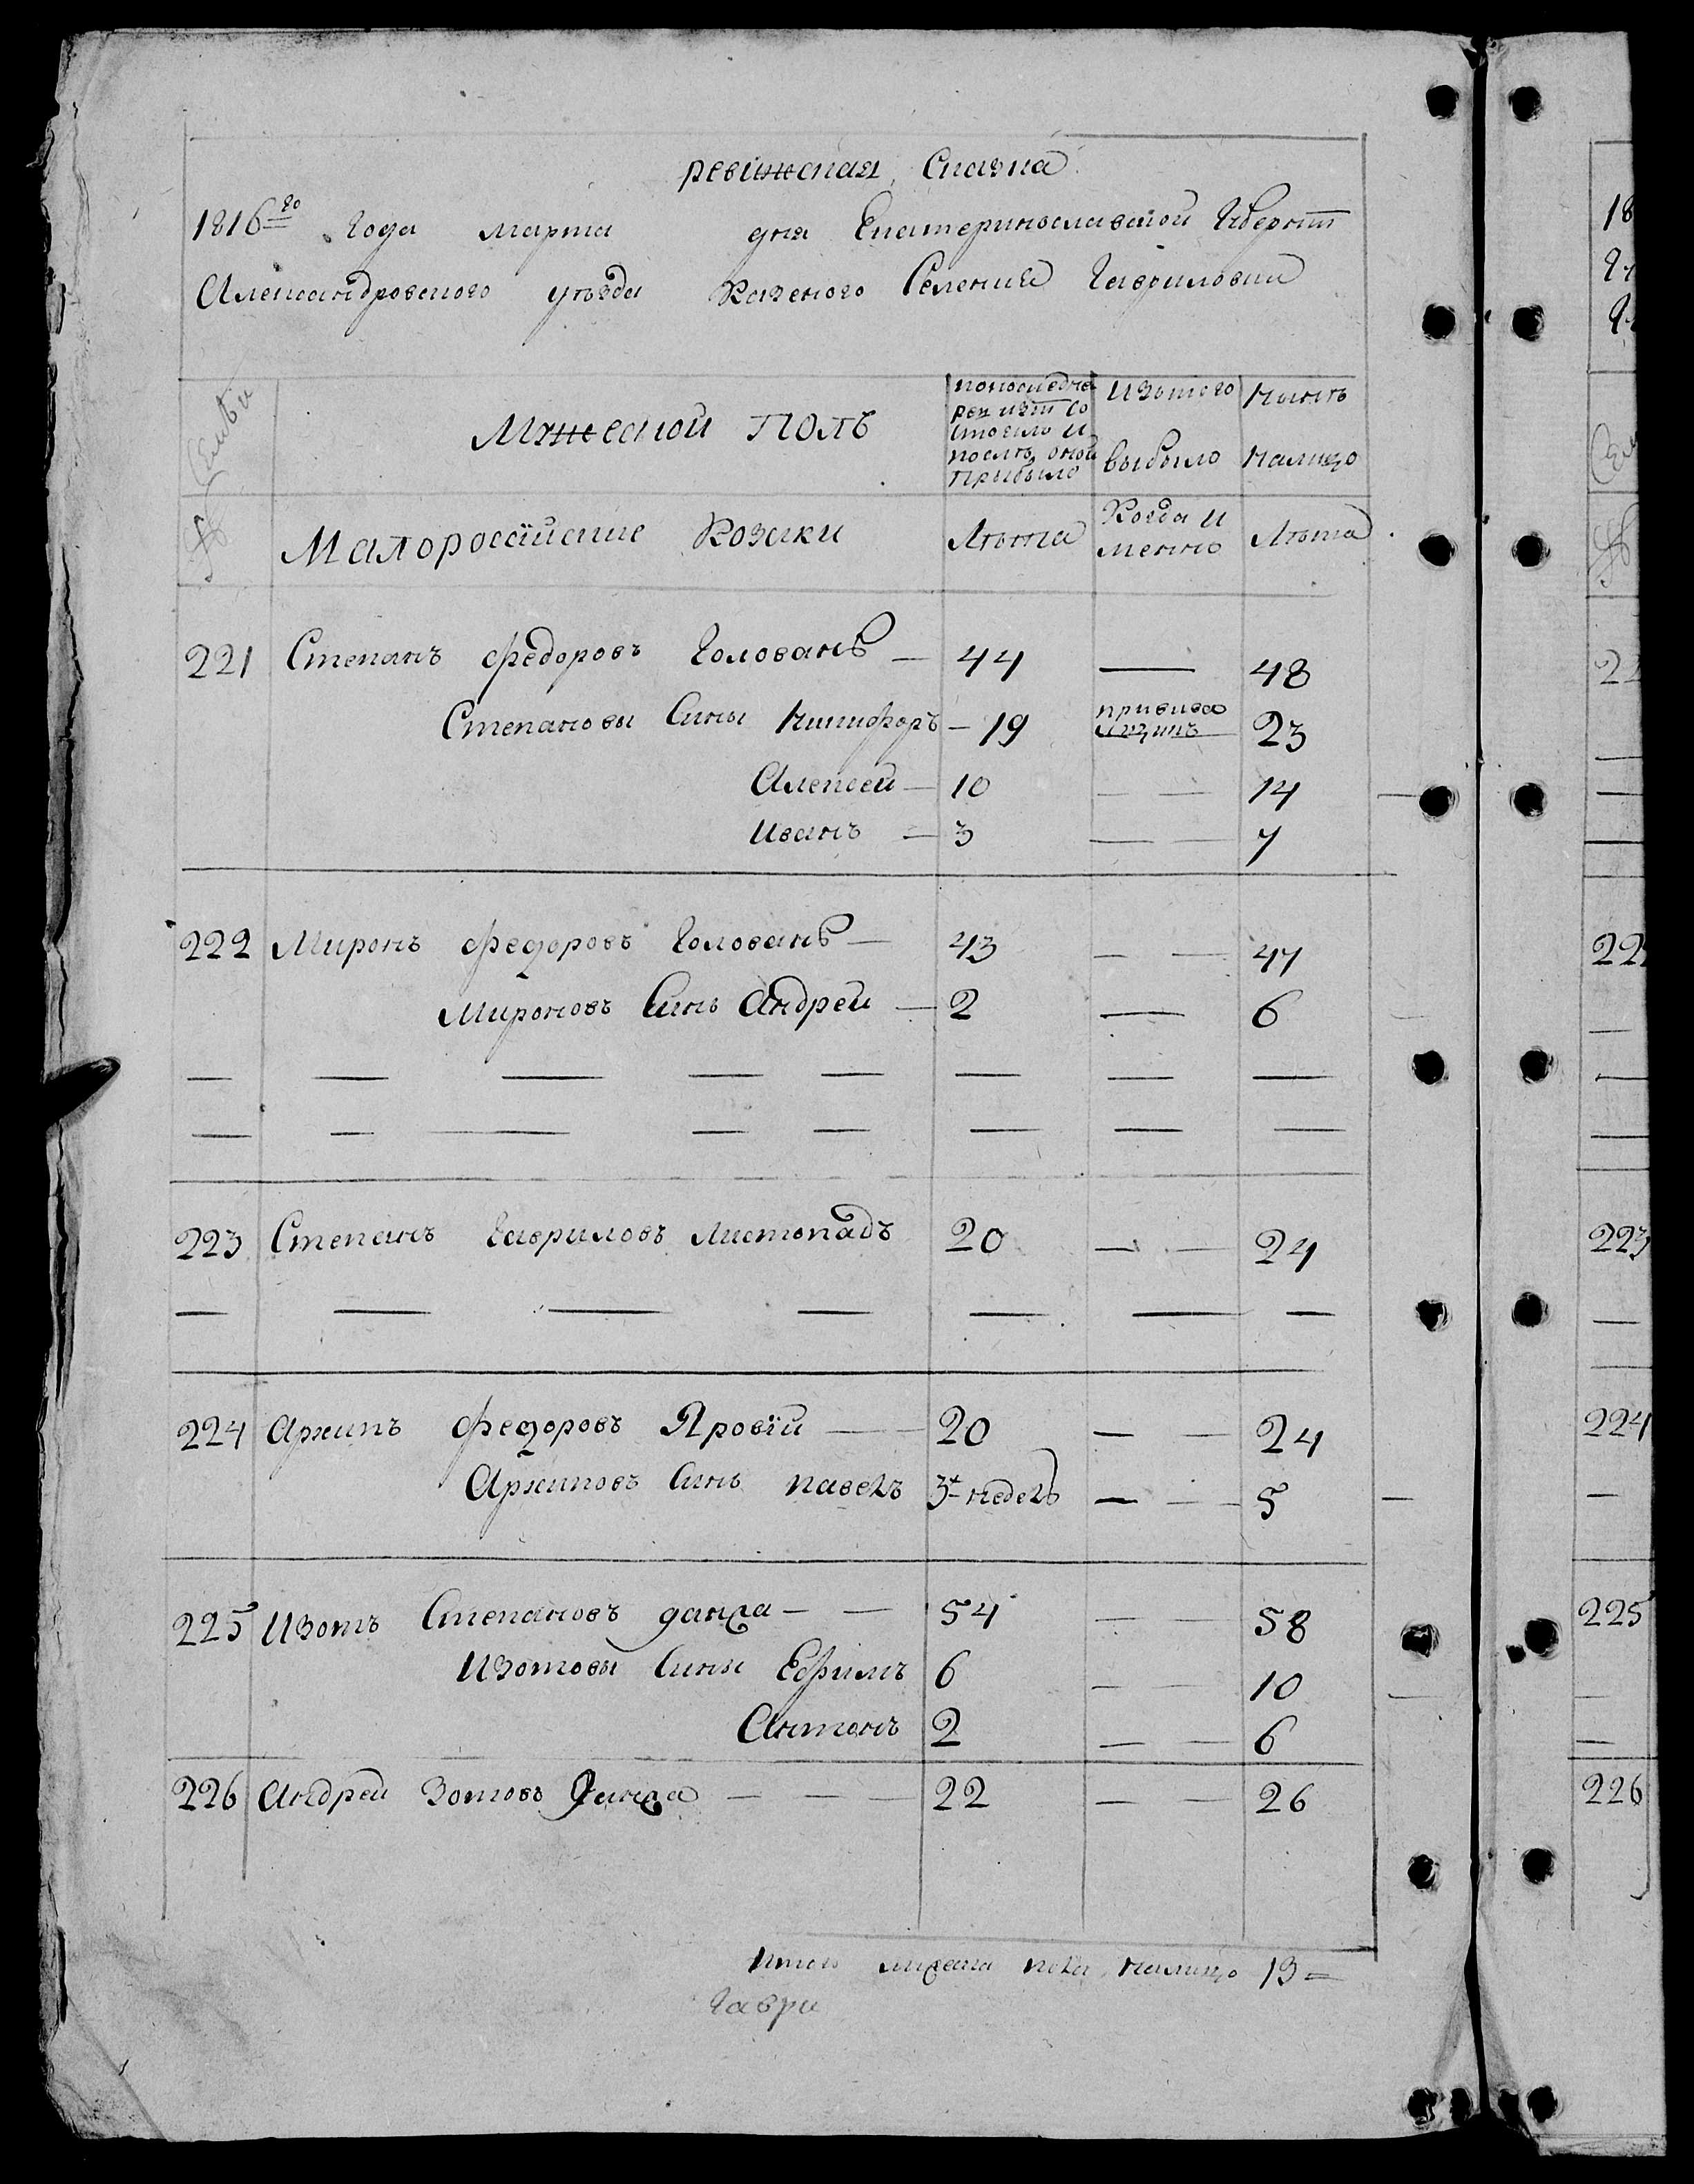 ревижская Сказка
1816го года марта дня Екатеринославской Губернїи
Александровского уѣзда Казеного Селения Гавриловки
Семьи
Мужеской Полъ
попоследне
ревизїи со
стояло и
послѣ оной
прибыло
Изътого
выбыло
Нынѣ
налицо
№
Малоросїйские Козаки
Лѣта
Когда И
менно
Лѣта
221 Степанъ Федоровъ Головань — 44 — 48
Степановы Сины Никифоръ — 19 23
Алексей — 10 — — 14
Иванъ — 3 — — 7
222 Миронъ Федоровъ Головань — 43 — — 47
Мироновъ Синъ Андрей — 2 — 6
— — — — — — — —
— — — — — — — —
223 Степанъ Гавриловъ Листопадъ 20 — — 24
— — — — — — —
224 Архипъ Федоровъ Яровїй — — 20 — — 24
Архиповъ Синъ павелъ 3х недель — — 5
225 Изотъ Степановъ ганжа — — 54 — — 58
Изотовы Сины Ефимъ 6 — — 10
Антонъ 2 — — 6
226 Андрей Зотовъ Ганжа — — — 22 — — 26
Итого мужеска пола налицо 13 =
Гаври
18
22
222
223
224
225
226